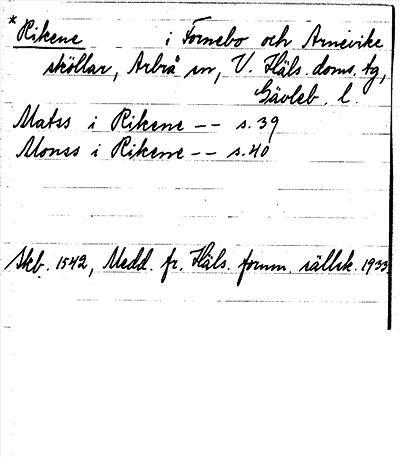 *Rikene i Fornebo och Arnevike
sköllar, Arbrå sn, V. Häls. doms. tg,
Gävleb. l.
Matss i Rikene -- s. 39
Monss i Rikene -- s. 40
Skb. 1542, Medd. fr. Häls. fornm. sällsk. 1933